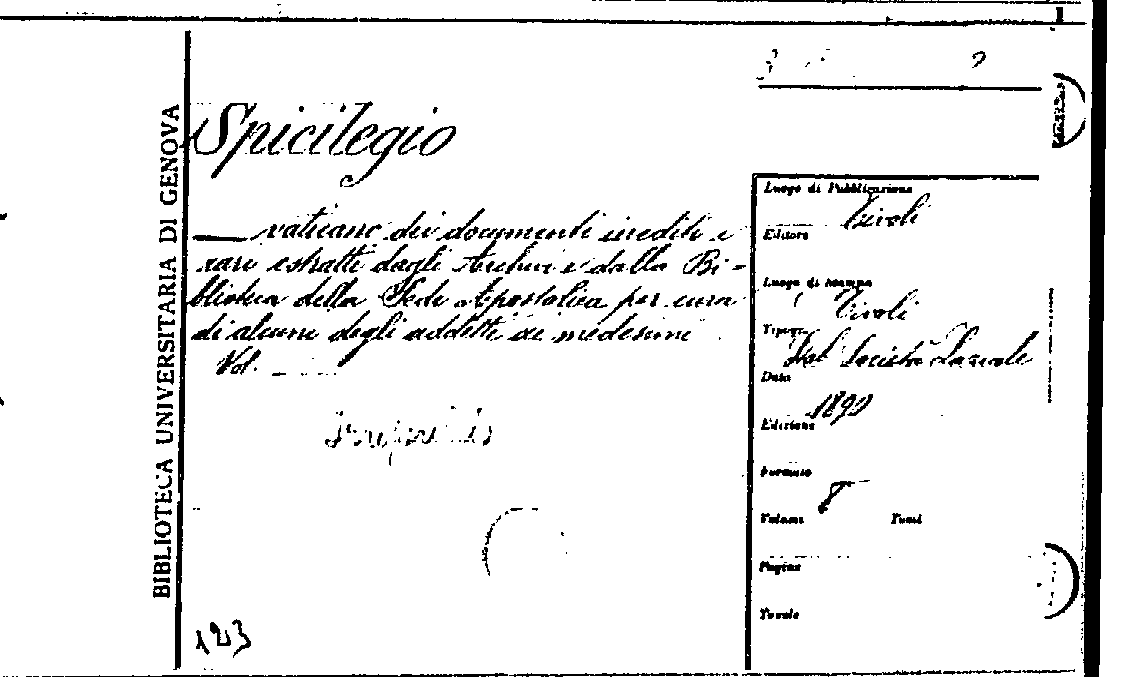 1
BIBLIOTECA UNIVERSITARIA DI GENOVA
Spicilegio
vaticano dei documenti inediti e
rari estratti dagli Archivi e dalla Bi-
blioteca della Sede Apostolica per cura
di alcuni degli addetti ai medesimi
Vol.
123
Luogo di Pubblicazione
Tivoli
Editore
Luogo di stampa
Tivoli
Tipogr.
Laziale
Data
1890
Edizione
Formato
8
Volumi Tomi
Pagine
Tavole